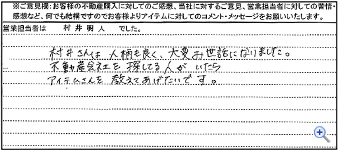 ※ご意見欄：お客様の不動産購入に対してのご感想、当社に対するご意見、営業担当者に対しての苦情・
感想など、何でも結構ですのでお客様よりアイテムに対してのコメント・メッセージをお願いいたします。
営業担当者は 村井明人 でした。
村井さんは人柄も良く、大変お世話になりました。
不動産会社を探してる人がいたら
アイテムさんを教えてあげたいです。